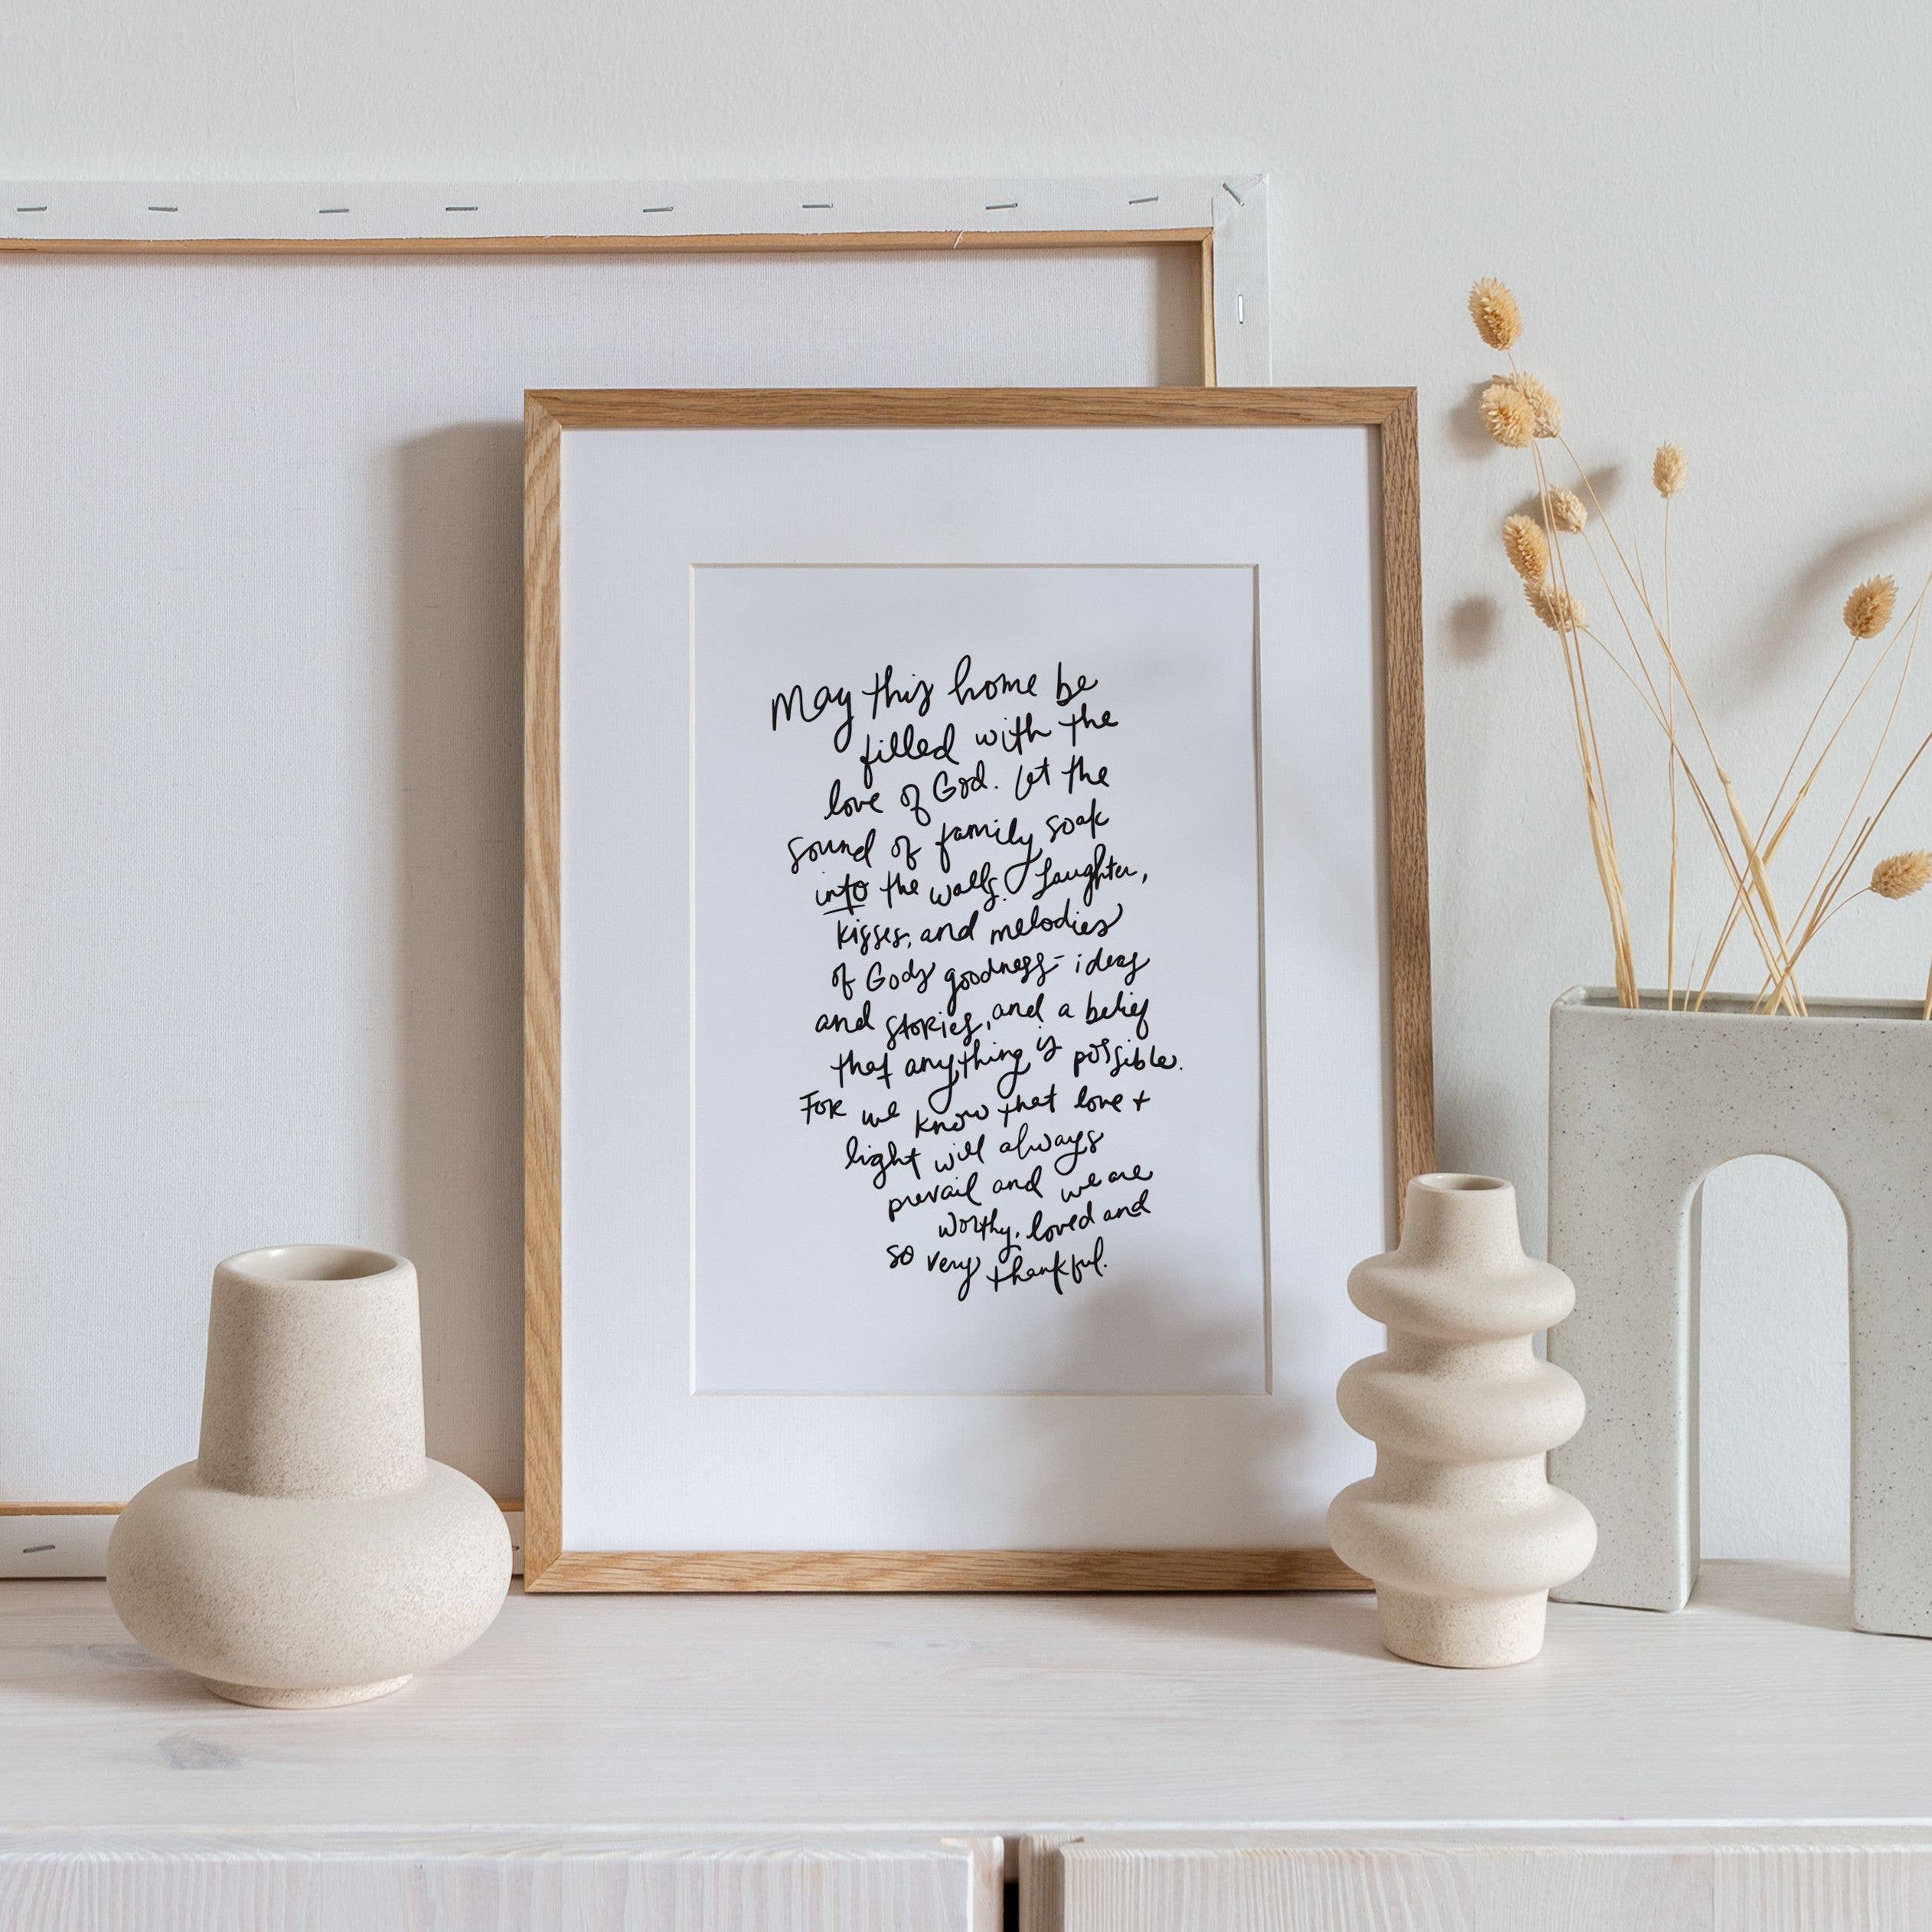 May this home be
filled with the
love of God. Let the
sound of family soak
into the walls. Laughter,
kisses, and melodies
of Gods goodness - ideas
and stories, and a belief
that anything is possible.
For we know that love +
light will always
prevail and we are
worthy, loved and
so very thankful.